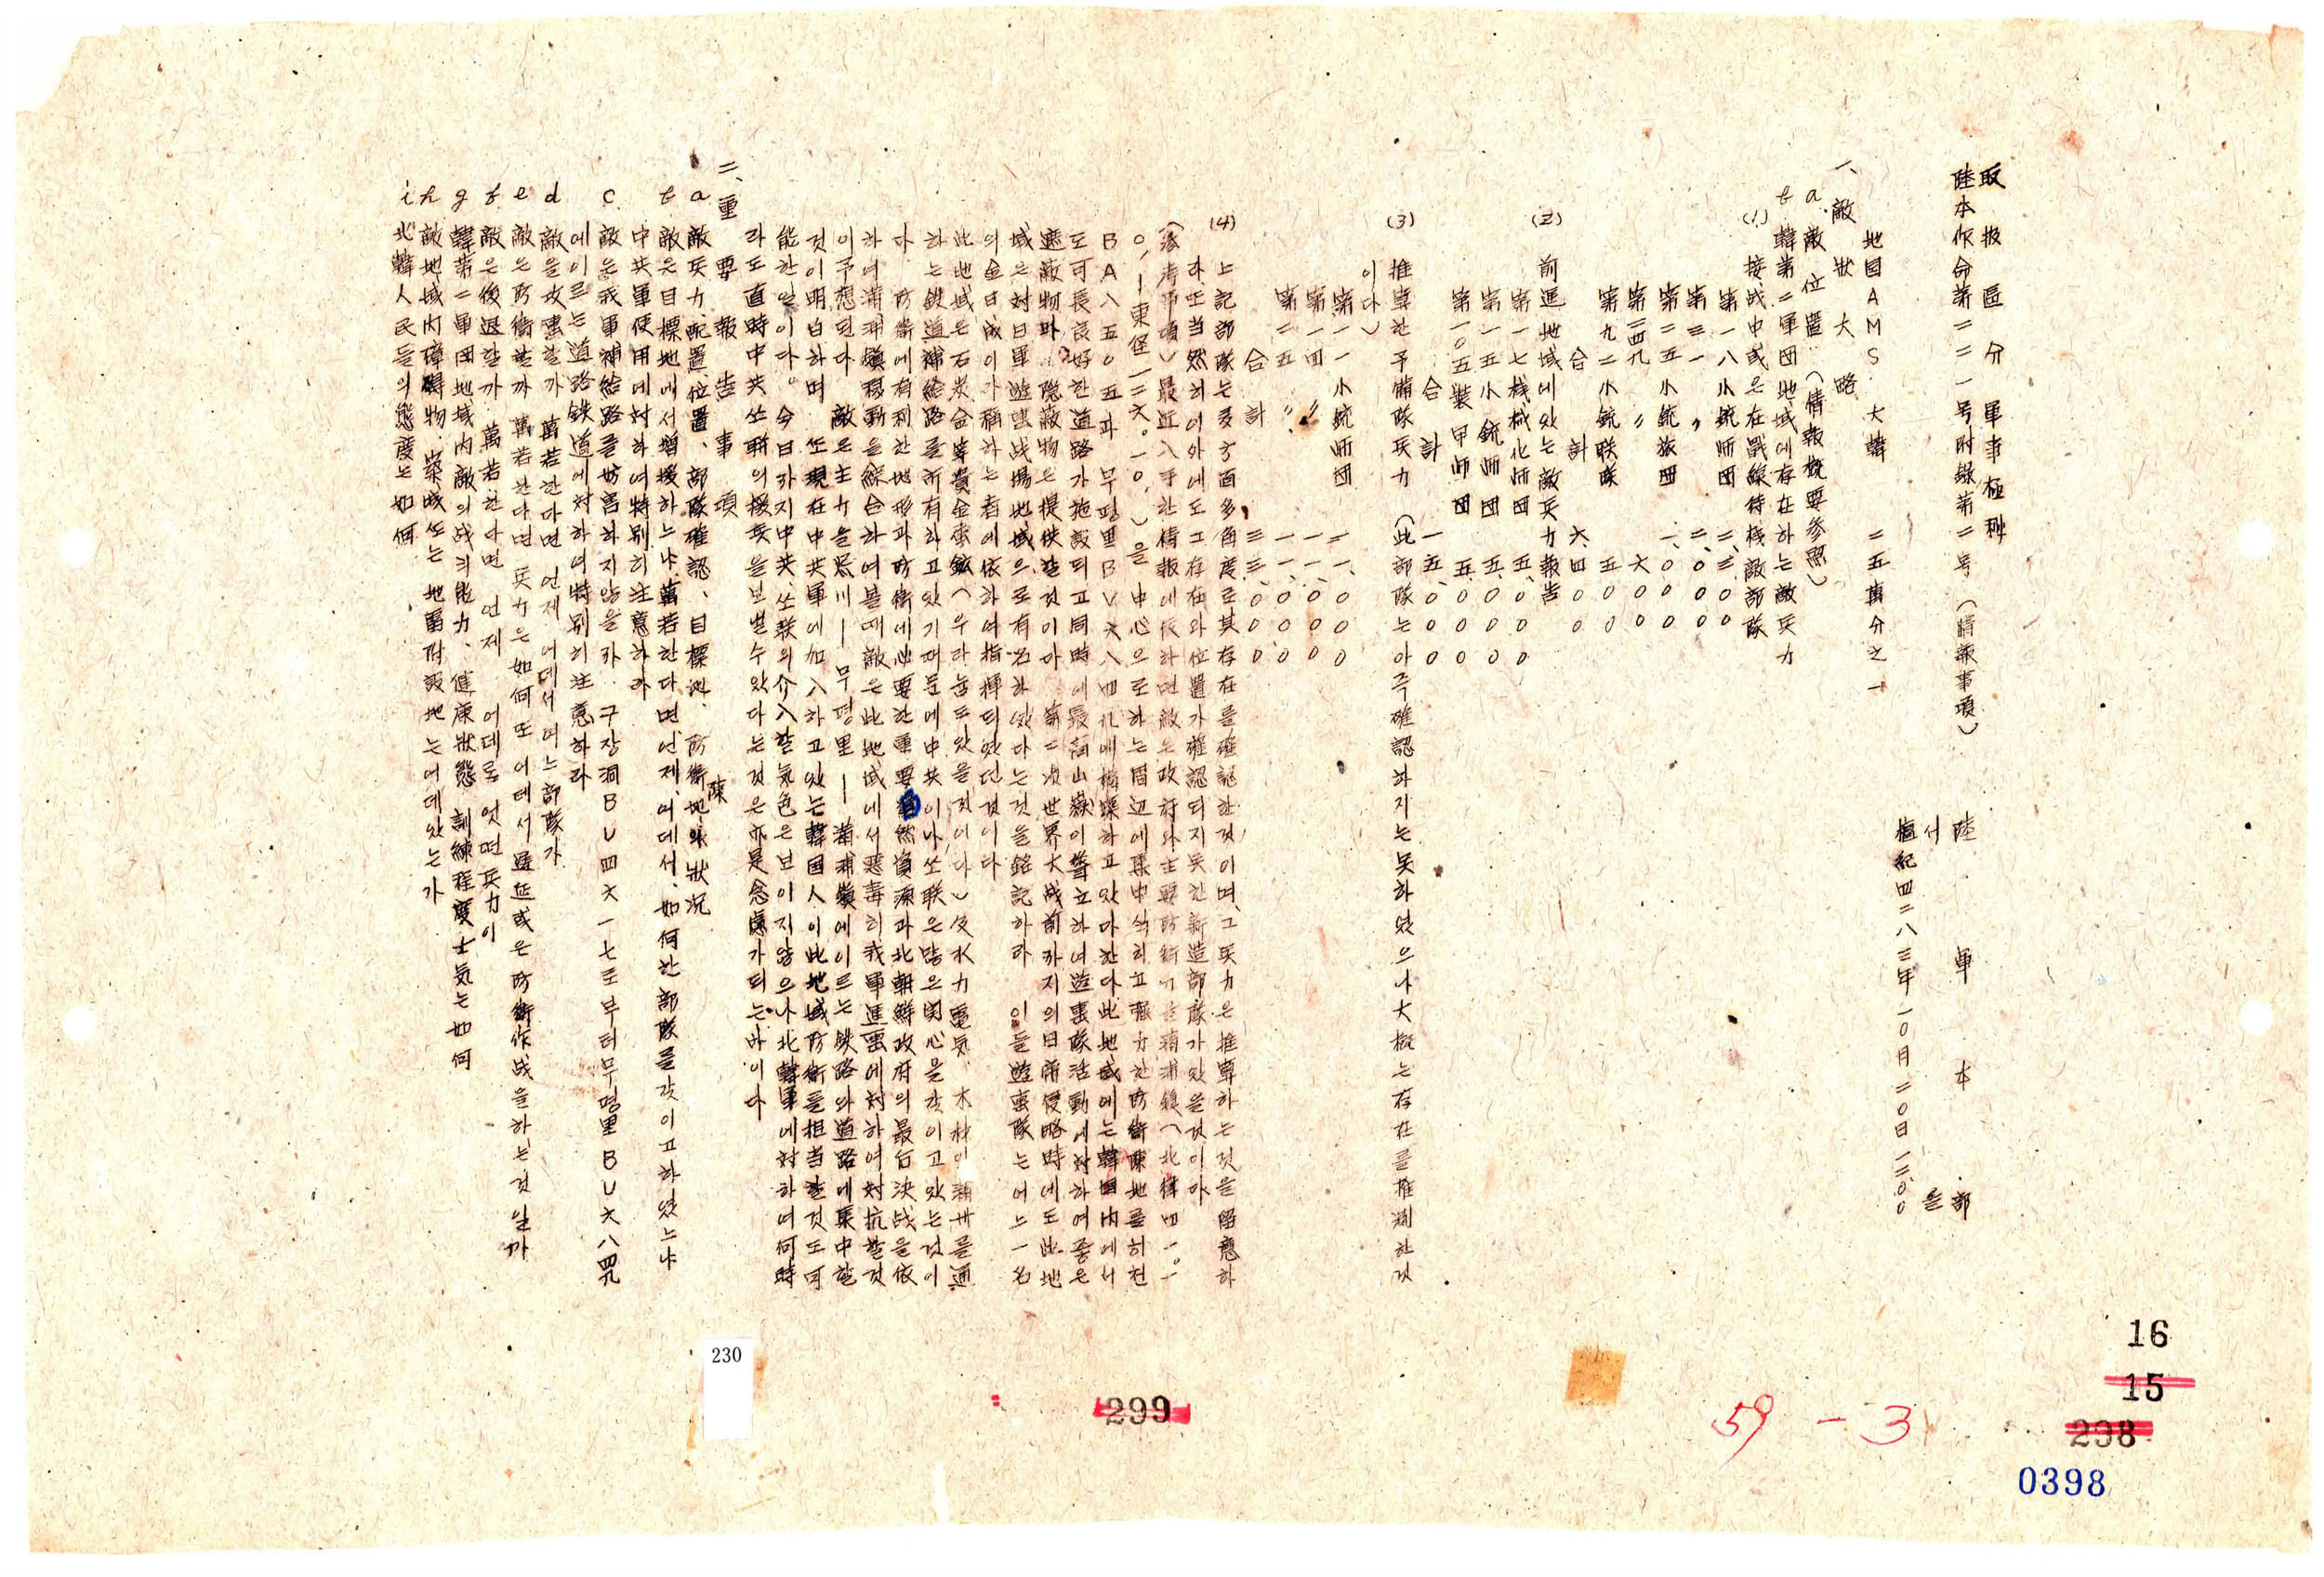 取扱區分 軍事極秘
陸本作命第二二一号附錄第二号(情報事項)
陸軍本部
서울
檀紀四二八三年一〇月二〇日一二〇〇
地図AMS.大韓 二五萬分之一
一、敵狀大略
a 敵位置 (情報槪要参照)
b 韓第二軍団地域에存在하는敵兵力
(1) 接战中或은在戰線待機敵部隊
第一八小銃师団 二、三〇〇
第三一 〃 二、〇〇〇
第二五小銃旅団 一、〇〇〇
第二四九 〃 六〇〇
第九二小銃联隊 五〇〇
合計 六、四〇〇
(2) 前進地域에있는敵兵力報告
第一七機械化师団 五、〇〇〇
第一五小銃师団 五、〇〇〇
第一〇五裝甲师団 五、〇〇〇
合計 一五、〇〇〇
(3) 推算한予備隊兵力 (此部隊는아주確認하지는못하였으나大槪는存在를推測한것
이다)
第一一小銃师団 一一、〇〇〇
第一四 〃 一一、〇〇〇
第二五 〃 一一、〇〇〇
合計 三三、〇〇〇
(4) 上記部隊는多方面多角度로其存在를確認한것이며、그兵力은推算하는것을留意하
라또当然히이와에도그存在와位置가確認되지못한新造部隊가있을것이다
(参考事項)最近入手한情報에依하면敵은政府와主要防衛 滿浦鎭(北緯四一。一
〇,ー東経一二六。一〇,)을中心으로하는周辺에集中식히고強力한防衛陳地를히천
BA八五〇五과 무평里BV六八四九에構築하고있다한다此地域에는韓国内에서
도可長良好한道路가施設되고同時에最高山嶽이聳立하녀遊擊隊活動에対하여종은
遮蔽物과 隠蔽物은提供할것이다 第二次世界大战前까지의日帝侵略時에도此地
域은対日軍遊擊战場地域으로有名하였다는것을銘記하라 이들遊擊隊는어느一名
의金日成이가稱하는者에依하여指揮되였던것이다
此地域은石炭金等貴金属鉱(우라늄도있을것이다)及水力電気 木材이 를通
하는鉄道補給路를所有하고있기때문에中共이나쏘联은많은関心을갖이고있는것이
다 防衛에有利한地形과防衛에必要한重要自然資源과北朝鮮政府의最后決战을依
하여滿浦鎭移動을綜合하여볼때敵은此地域에서惡毒히我軍進擊에対하여対抗할것
이予想된다 敵은主力을熙川ー무평里ー滿浦鎭에이르는鉄路와道路에集中할
것이明白하며 또現在中共軍에加入하고있는韓国人이此地域防衛를担当할것도可
能한일이다。今日까지中共、쏘联의介入할気色은보이지않으나北韓軍에対하여何時
라도直時中共쏘联의援兵을보낼수있다는것은亦是念慮가되는바이다
二、重要報告事項
a 敵兵力、配置位置、部隊確認、目標地、防衛陳地의狀況
b 敵은目標地에서增援하느냐 萬若한다면언제、어데서、如何한部隊를갖이고하였느냐
中共軍使用에対하여特別히注意하라
C 敵은我軍補給路를妨害하지않을까 구장洞BU四六一七로부터무평里BU六八四九
에이르는道路鉄道에対하여特別히注意하라
d 敵을攻擊할까 萬若한다면 언제 어데서 어느部隊가
e 敵은防衛할까 萬若한다면 兵力은如何또 어데서遅延或은防衛作战을하는것일까
f 敵은後退할까 萬若한다면 언제 어데로 엇떤兵力이
g 韓第二軍団地域内敵의战斗能力、健康狀態 訓練程度士気는如何
h 敵地域内障碍物.築城또는 地雷附設地는어데있는가
i 北韓人民들의態度는如何
230
299
59-3
16
15
298
0398